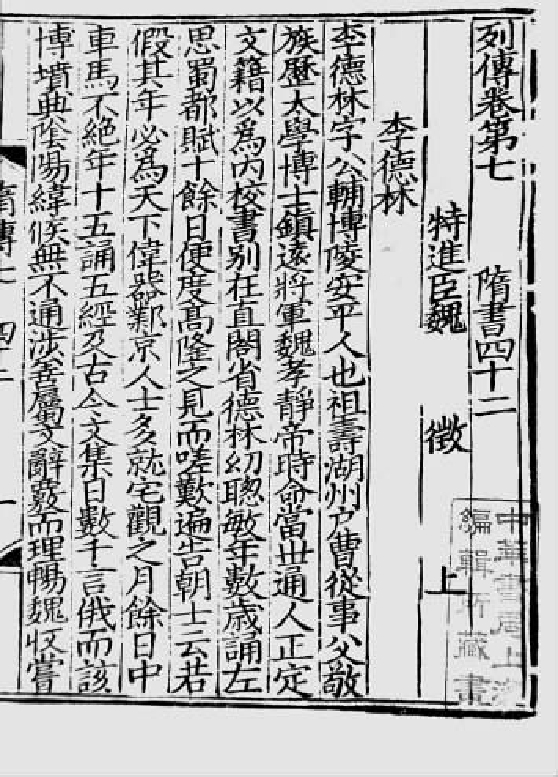 列傳卷第七　隋書四十二
特進臣魏　徵　上
李德林
李德林字公輔博陵安平人也祖壽湖州户曹從事父敬
族歷太學博士鎮遠將軍魏孝靜帝時命當世通人正定
文籍以爲内校書别在直閣省德林幼聰敏年數歲誦左
思蜀都賦十餘日便度髙隆之見而嗟歎遍告朝士云若
假其年必爲天下偉器鄴京人士多就宅觀之月餘日中
車馬不絶年十五誦五經及古今文集日數千言俄而該
博墳典陰陽緯候無不通涉善屬文辭覈而理暢魏收嘗
中華書局上海
編輯所藏書